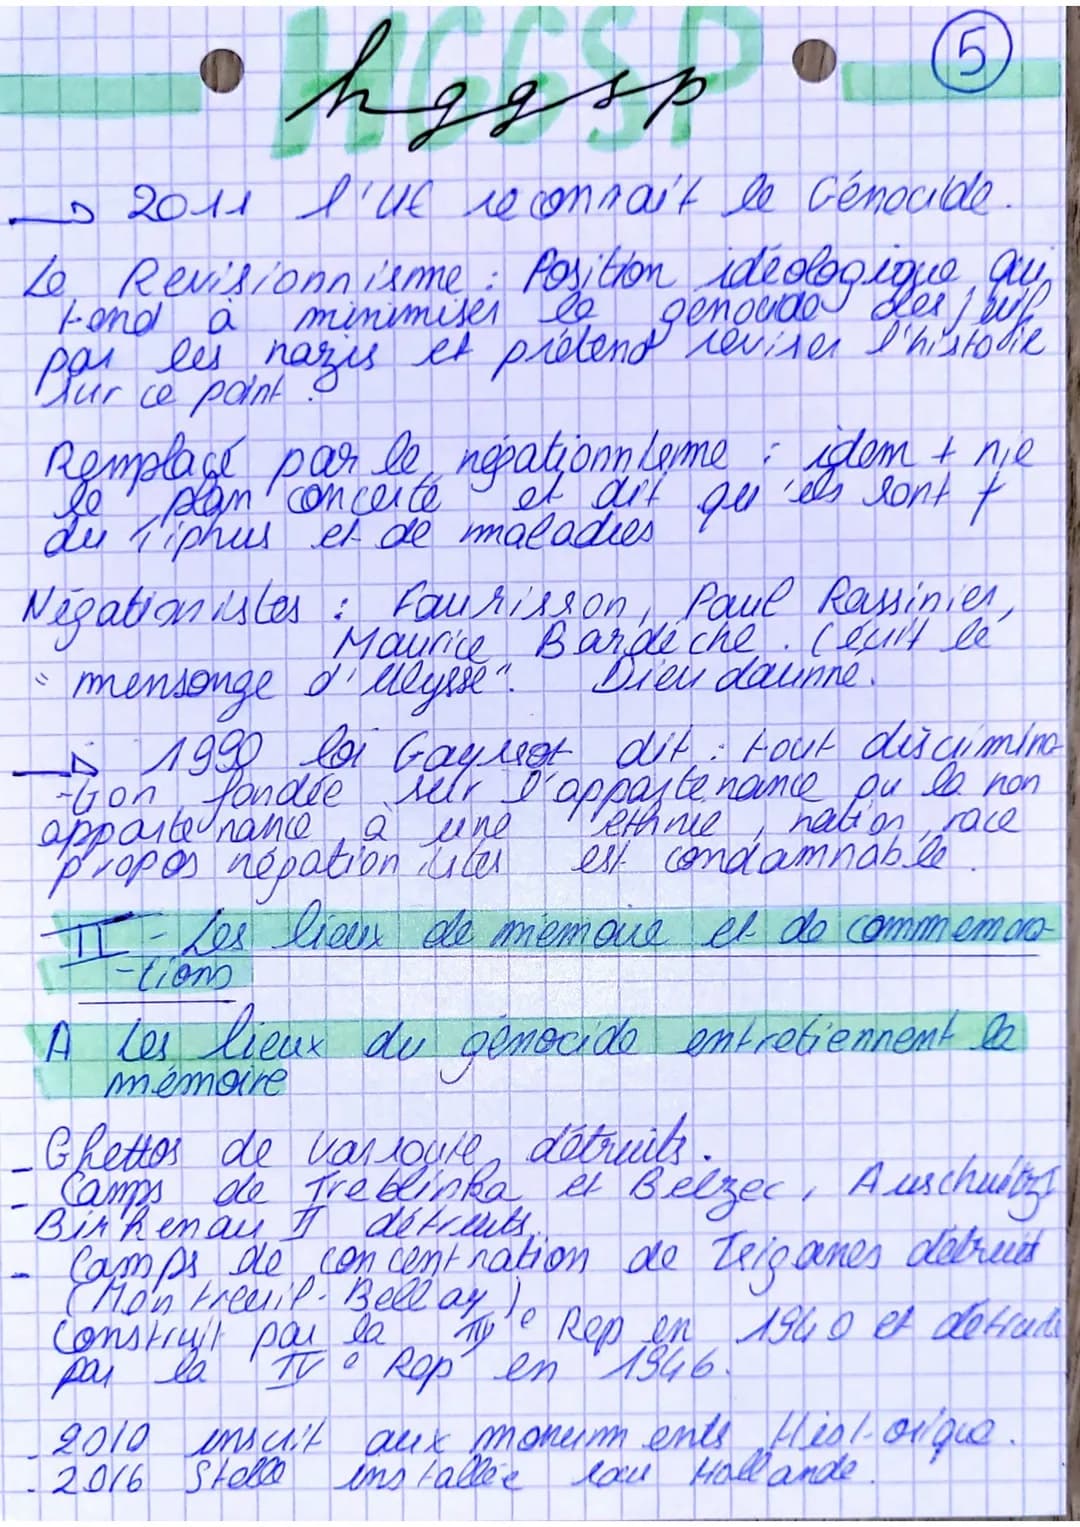 HGGSP
hggsp
5
→ 2011 l'UE reconnaît le Génocide.
Le Revisionnisme : Position idéologique qui
tend à minimiser le génocide des juifs
par les nazis et prétend réviser l'histoire
sur ce point.
Remplacé par le négationnisme : idem + nie
le plan concerté et dit qu'ils sont †
du Tiphus et de maladies
Négationistes : Faurisson, Paul Rassinier,
Maurice Bardèche. (écrit le
"mensonge d'Ulysse". Dieudaunne.
→ 1990 loi Gayssot dit : tout discimina-
-tion fondée sur l'appartenance ou la non
appartenance à une ethnie, nation, race
propos négationistes est condamnable.
II - Les lieux de mémoire et de commemora-
-tions
A Les lieux du génocide entretiennent la
mémoire
- Ghettos de Varsovie détruits.
- Camps de Treblinka et Belzec, Auschwitz I
Birkenau II détruits.
- Camps de concentration de Tsiganes détruit
(Montreuil-Bellay)
Construit par la IIIe Rep en 1940 et détruits
par la IVe Rep en 1946.
- 2010 inscrit aux monuments Historique.
- 2016 Stelle installée sous Hollande.